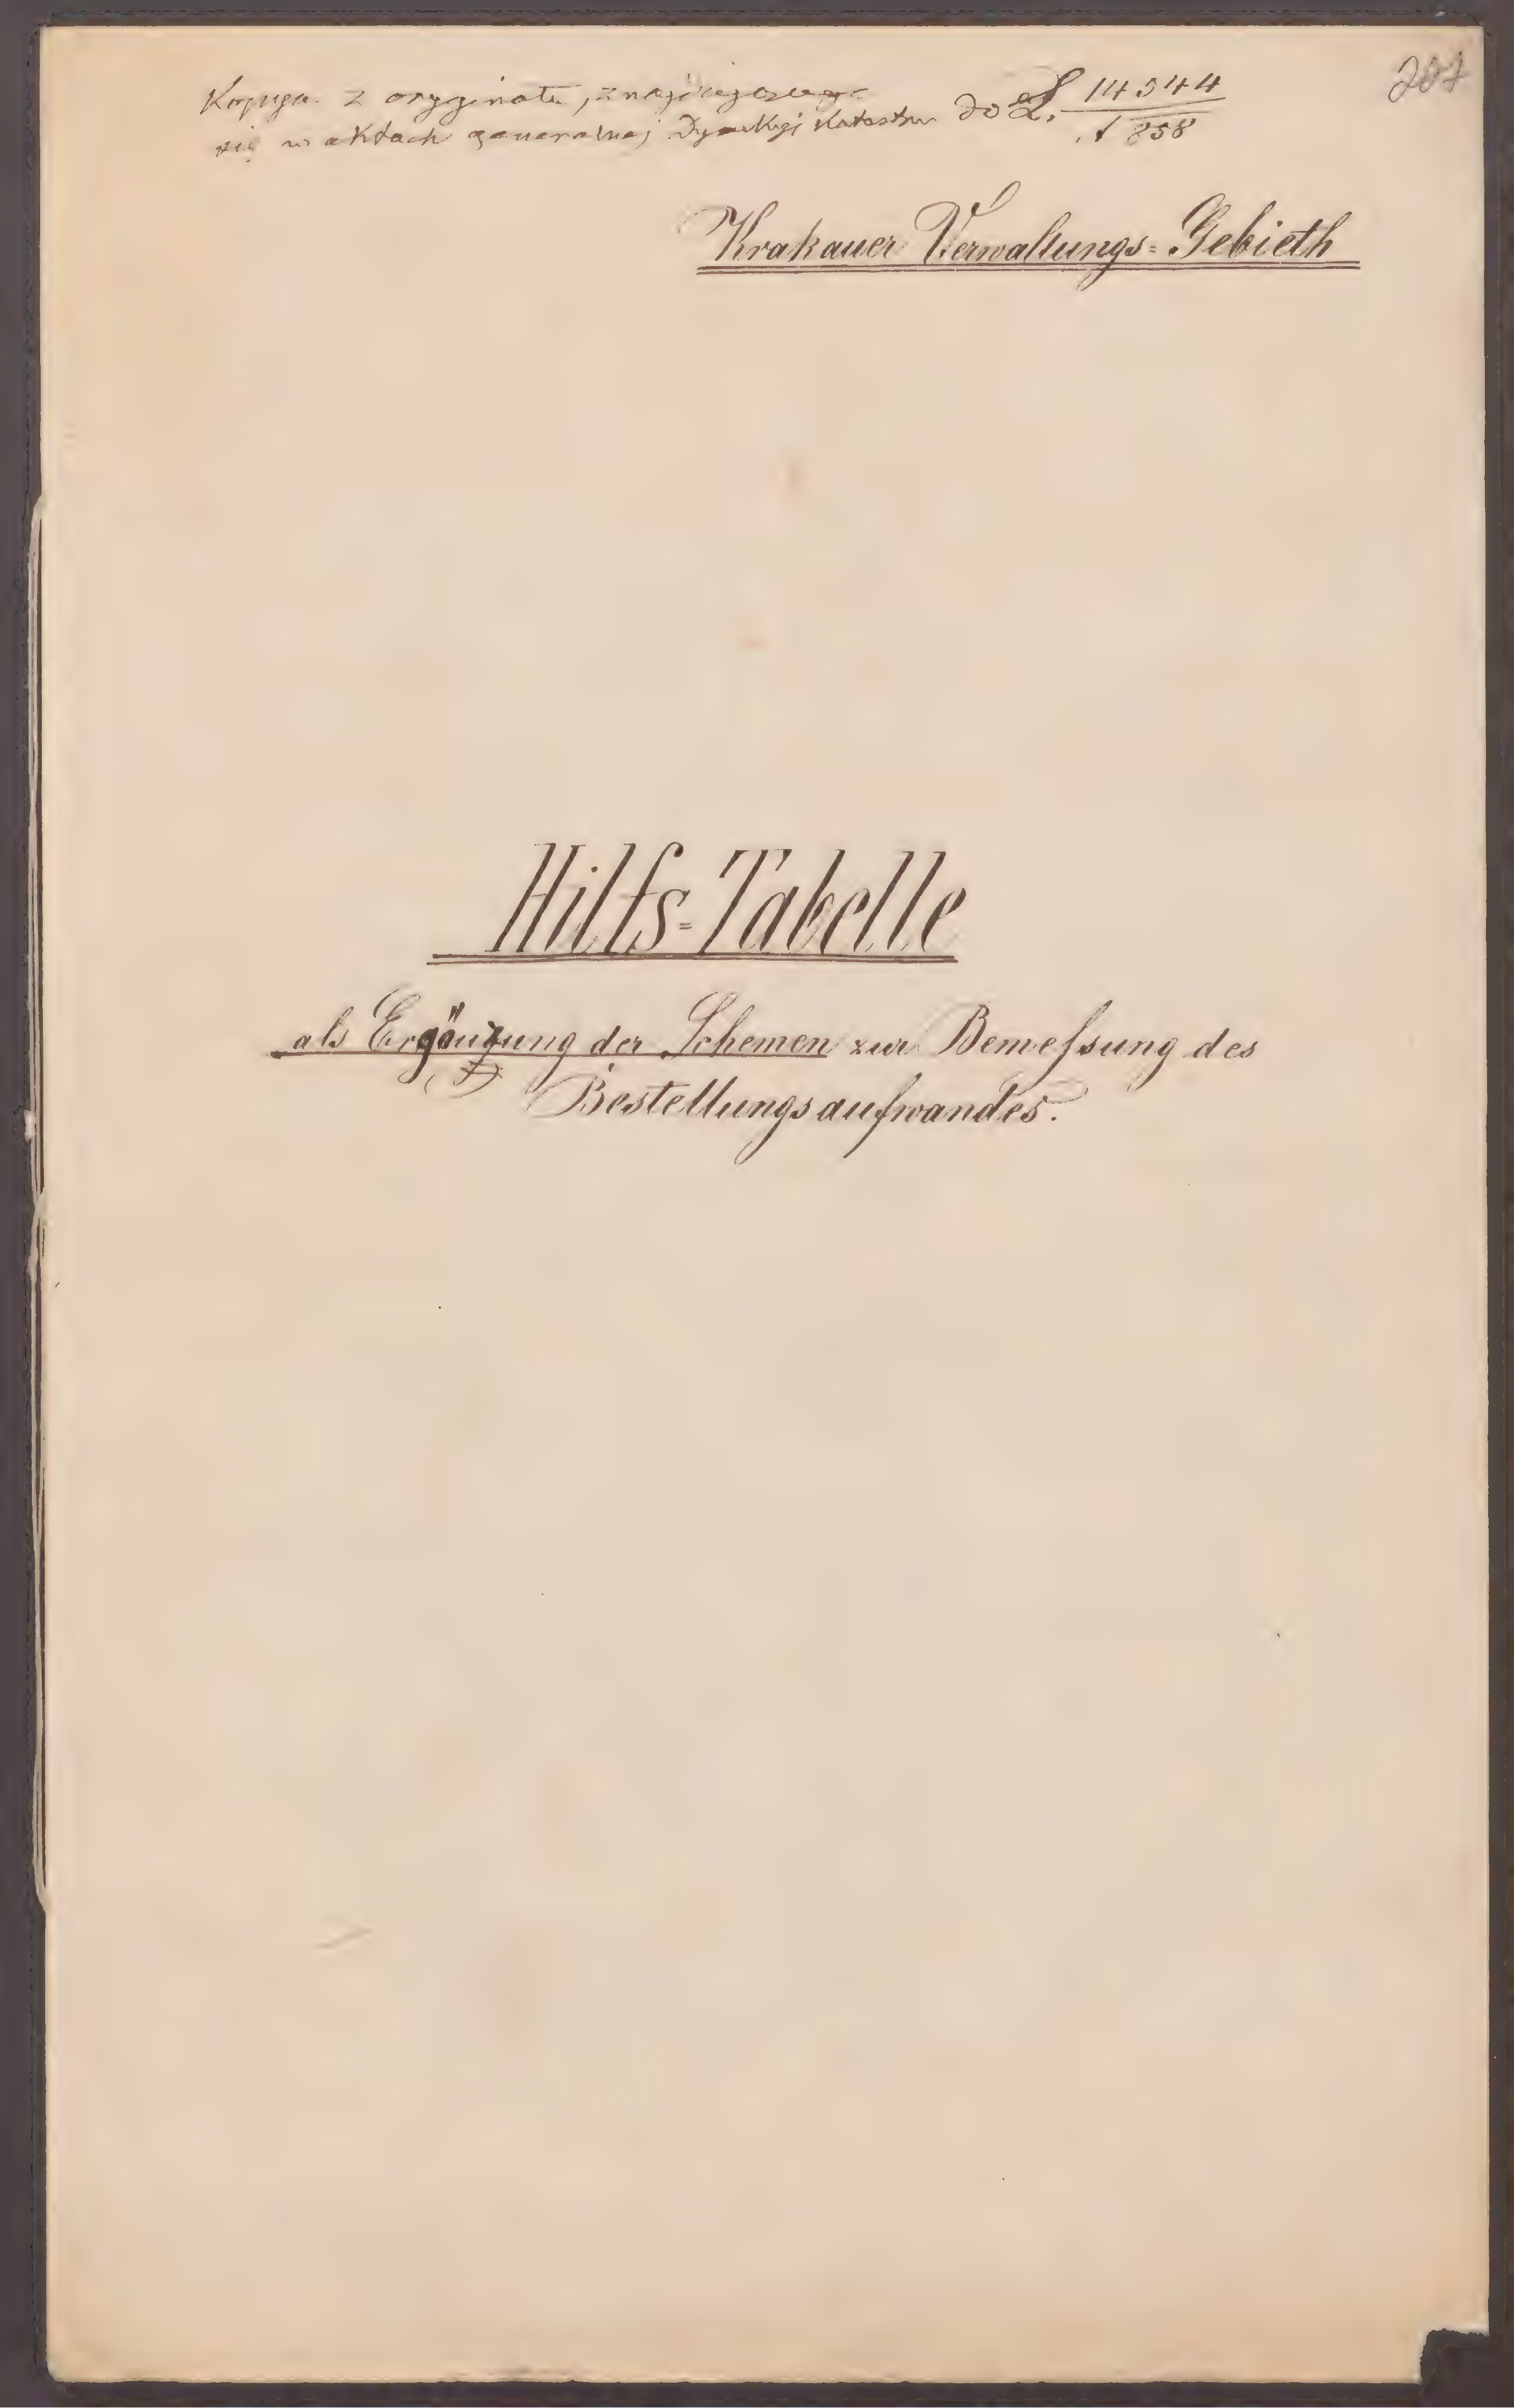 Kopija z oryginału, znajdującego
się w aktach generalnej Dyrekcyi Katastru do L. 14544
1858
Krakauer Verwaltungs=Gebieth
Hilfs=Tabelle
als Ergänzung der Schemen zur Bemeſsung des
Bestellungsaufwandes.